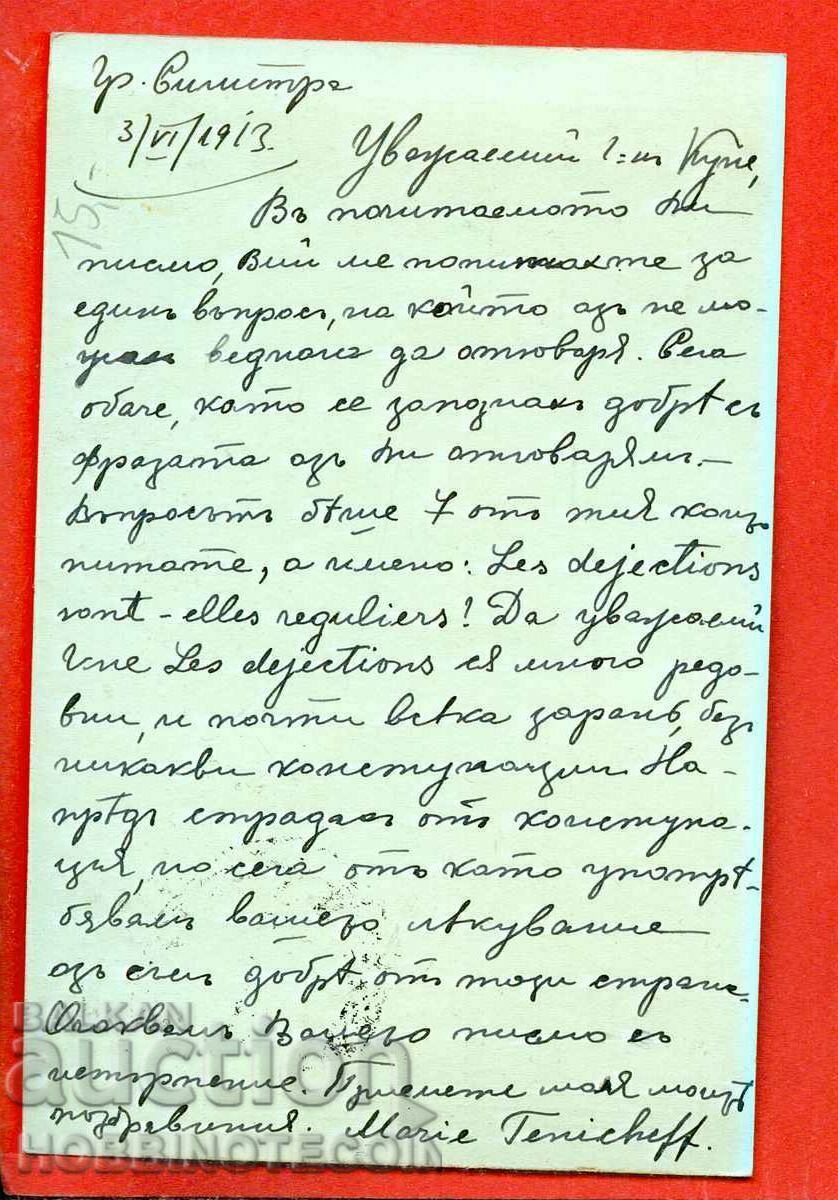 гр. Силистра
3/VI/1913.
15,-
Уважаемий Г-нъ Купе,
Въ почитаемото Ви
писмо, Вий ме попитахте за
единъ въпросъ, на който азъ не мо-
жах веднага да отговаря. Сега
обаче, като се запознахъ добрѣ съ
фразата азъ Ви отговарямъ. –
Въпросътъ бѣше 7 отъ тия които
питате, а имено: Les dejections
sont-elles reguliers! Да уважаемий
Г-не Les dejections ся много редо-
вни, и почти всѣка зарань, безъ
никакви конступации. На-
прѣдъ страдах отъ конступа-
ция, но сега отъ като употрѣ-
бявамъ вашето лѣкувание
азъ съмъ добрѣ отъ тази страна.
Очаквамъ Вашето писмо съ
нетърпение. Приемете моля моитѣ
поздравления. Marie Tenicheff.
BALKAN
auction
HOBBINOTECOIN